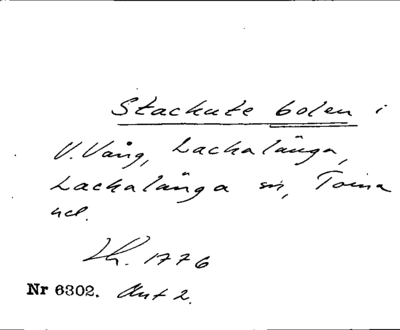 Stackute bolen i
V. Vång, Lackalänga,
Lackalänga sn, Torna
hd.
Lk. 1776
Nr 6302. Ant 2.